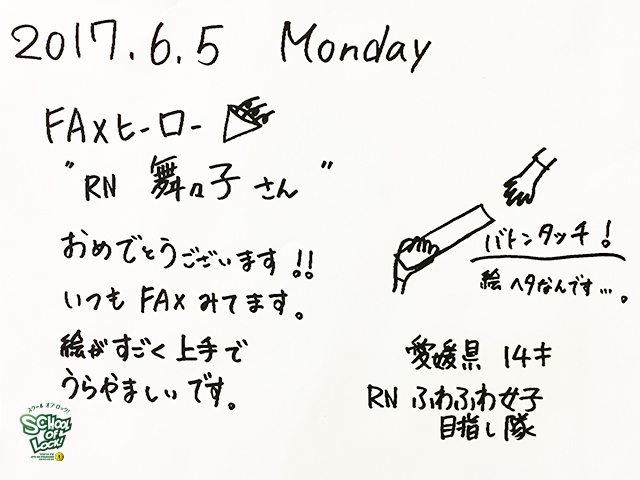 2017.6.5 Monday
FAXヒーロー
"RN 舞々子さん"
おめでとうございます!!
いつもFAXみてます。
絵がすごく上手で
うらやましいです。
バトンタッチ!
絵ヘタなんです…。
愛媛県 14才
RN ふわふわ女子
目指し隊
スクール オブ ロック!
SCHOOL
OF
LOCK!